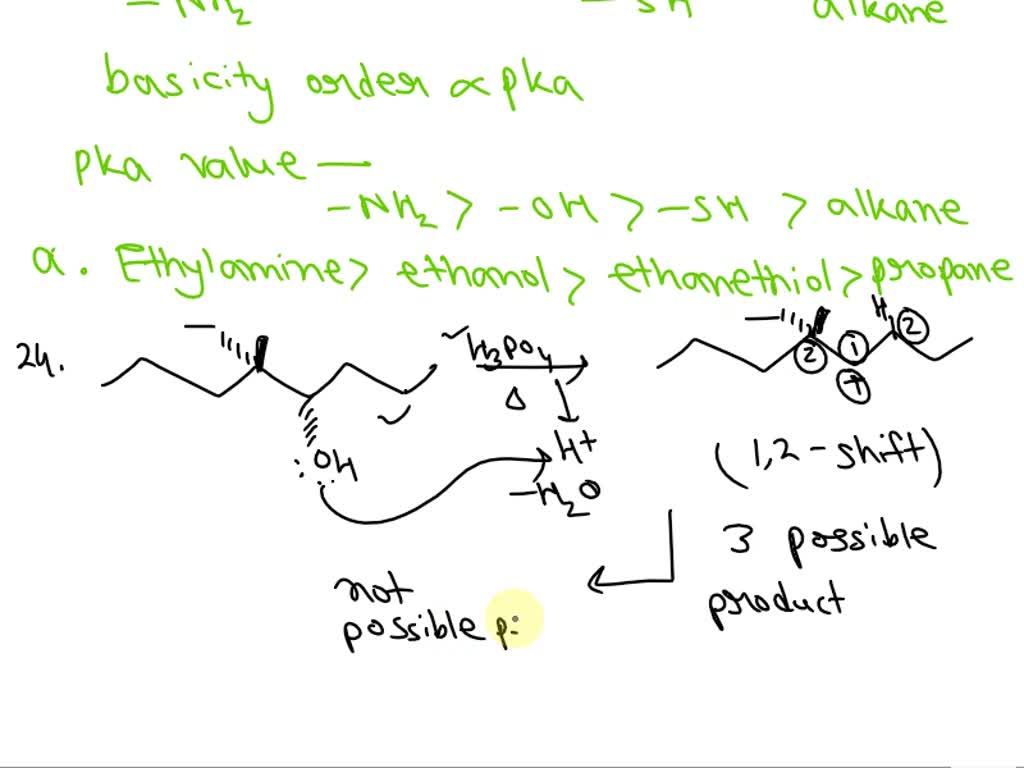 -NH2 -SH alkane
basicity order ∝ pka
pka value —
-NH2 > -OH > -SH > alkane
a. Ethylamine > ethanol > ethanethiol > propane
24.
H3PO4
Δ
H+
-H2O
:OH
H
2 1 2
+
(1,2-shift)
3 possible
product
not
possible p